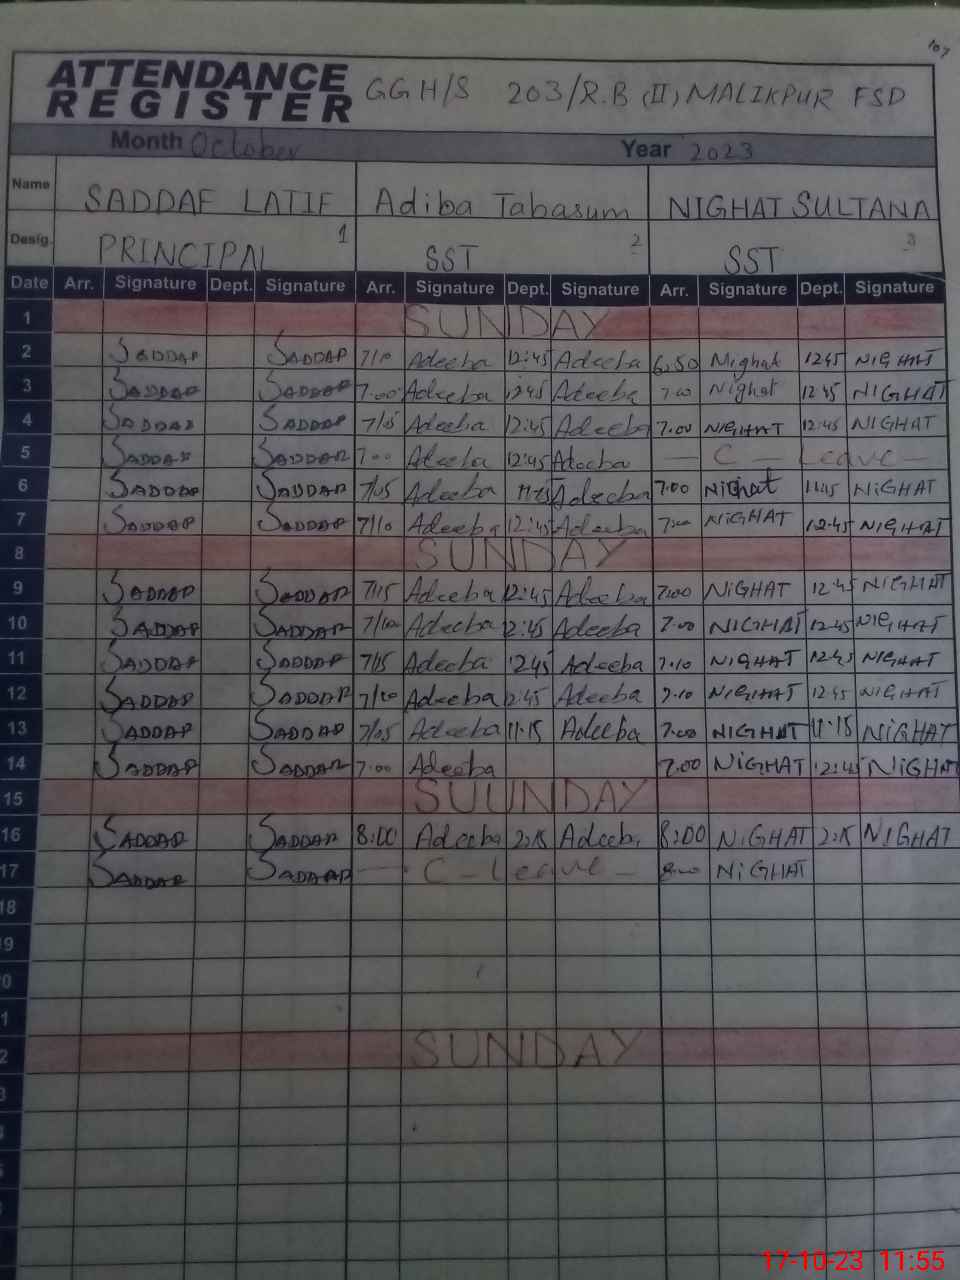 107
ATTENDANCE
REGISTER GGH/S 203/R.B (II) MALIKPUR FSD
Month October Year 2023
Name SADDAF LATIF Adiba Tabasum NIGHAT SULTANA
Desig. PRINCIPAL 1 SST 2 SST 3
Date Arr. Signature Dept. Signature Arr. Signature Dept. Signature Arr. Signature Dept. Signature
1 SUNDAY
2 SADDAF SADDAF 7/10 Adeeba 12:45 Adeeba 6:50 Nighat 12:45 NIGHAT
3 SADDAF SADDAF 7:00 Adeeba 12:45 Adeeba 7:00 Nighat 12:45 NIGHAT
4 SADDAF SADDAF 7/05 Adeeba 12:45 Adeeba 7:00 NIGHAT 12:45 NIGHAT
5 SADDAF SADDAF 7:00 Adeeba 12:45 Adeeba — C — Leave —
6 SADDAF SADDAF 7/05 Adeeba 11:15 Adeeba 7:00 Nighat 11:15 NiGHAT
7 SADDAF SADDAF 7/10 Adeeba 12:45 Adeeba 7:00 NiGHAT 12:45 NIGHAT
8 SUNDAY
9 SADDAF SADDAF 7/15 Adeeba 12:45 Adeeba 7:00 NiGHAT 12:45 NIGHAT
10 SADDAF SADDAF Adeeba 12:45 Adeeba 7:00 NIGHAT 12:45 NIGHAT
11 SADDAF SADDAF 7/15 Adeeba 12:45 Adeeba 7:10 NIGHAT 12:45 NIGHAT
12 SADDAF SADDAF 7/10 Adeeba 12:45 Adeeba 7:10 NIGHAT 12:45 NIGHAT
13 SADDAF SADDAF 7/05 Adeeba 11:15 Adeeba 7:00 NIGHAT 11:15 NiGHAT
14 SADDAF SADDAF 7:00 Adeeba 7:00 NIGHAT 12:45 NIGHAT
15 SUUNDAY
16 SADDAF SADDAF 8:00 Adeeba 2:15 Adeeba 8:00 NiGHAT 2:15 NIGHAT
17 SADDAF SADDAF — C — Leave — 8:00 NiGHAT
18
9
0
1
2 SUNDAY
3
17-10-23 11:55